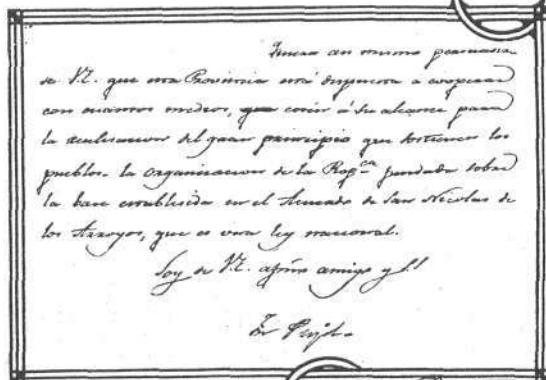 de V.E. que esta Provincia está dispuesta a cooperar
con cuantos medios, que estén á su alcance para
la realisacion del gran principio que sostienen los
pueblos. la organizacion de la Rep.ca fundada sobre
la base establecida en el Acuerdo de San Nicolas de
los Arroyos, que es una ley nacional.
Soy de V.E. afmo amigo y S.S.
Pujol